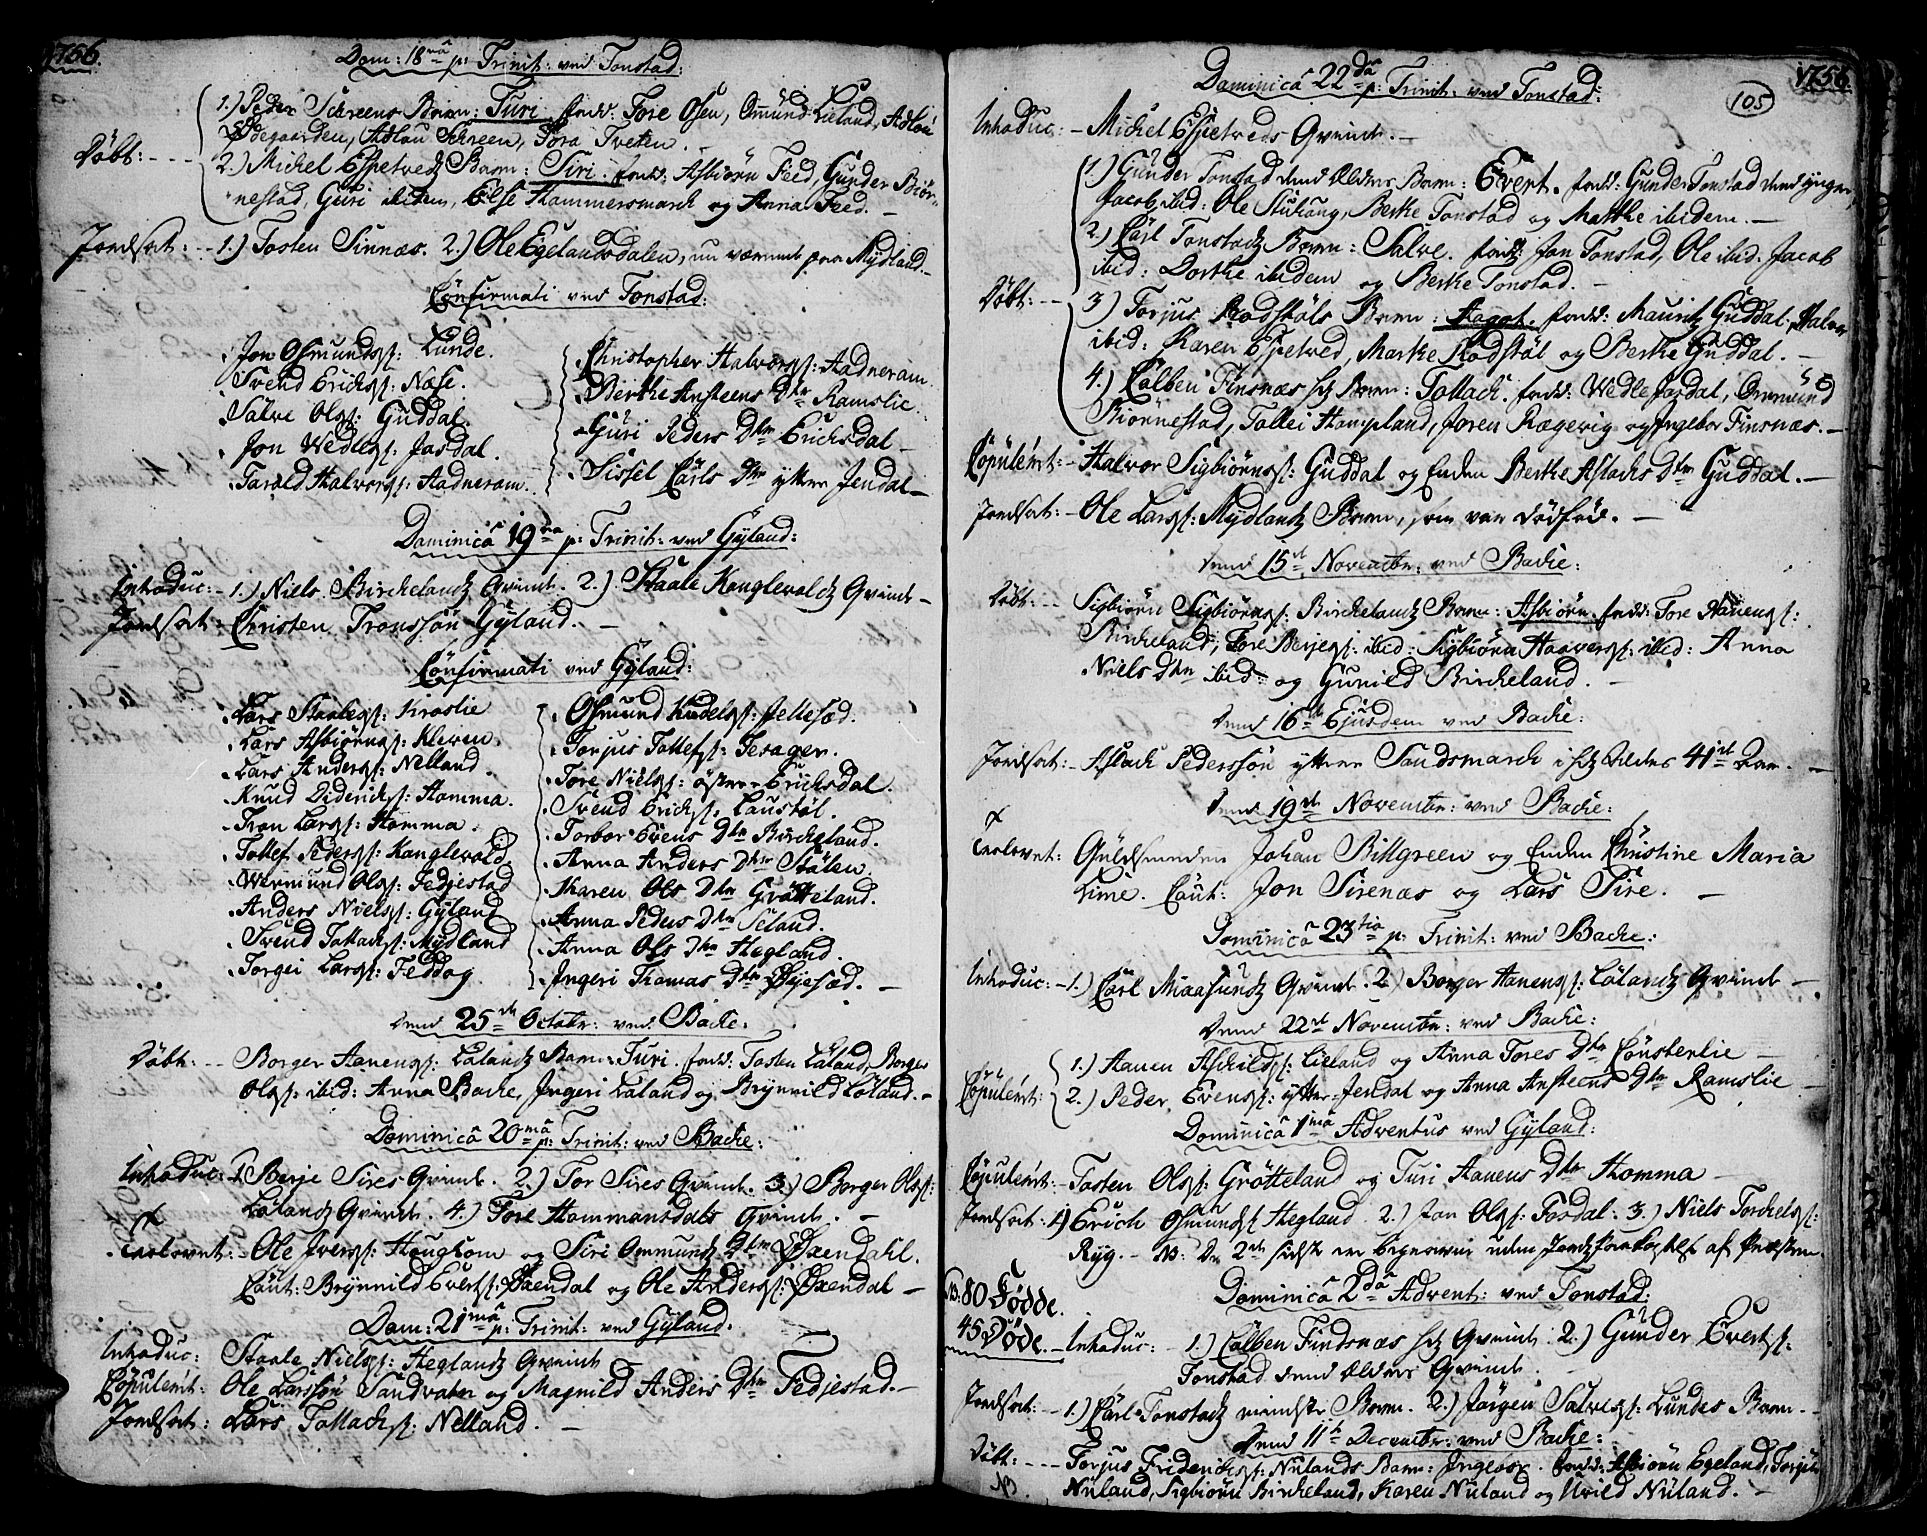 1756.
Dom: 18na p: Trinit: ved Tonstad:
1.) Peder Schreens Barn: Turi fadd: Tore Osen, Omund Lieland, Adlou
Ødegaarden, Adlou Schreen, Tora Tveten.
Døbt: ---
2.) Michel Espetvedz Barn: Siri. fadd: Asbiørn Feed, Gunder Biør-
nestad, Guri ibidem, Else Hammersmarck og Anna Feed. -
Jordsat: -- 1.) Tosten Sinnæs. 2.) Ole Egelandsdalen, nu værende paa Mydland.
Confirmati ved Tonstad:
Jon Osmunds: Lunde.
Svend Erichs: Næse.
Salve Ols: Guddal.
Jon Wedles: Josdal.
Tarald Halvors: Aadneram.
Christopher Halvors: Aadneram.
Berthe Ansteens Dtr Ramslie.
Guri Peders Dtr Erichsdal
Sissel Carls Dtr yttre Jendal
Dominicâ 19na p: Trinit: ved Gyland:
Introduc: - 1.) Niels Birchelandz Qvinde. 2.) Staale Konglevoldz Qvinde -
Jordsat - Christen Tronssøn Gyland. -
Confirmati ved Gyland:
Lars Staales: Kroslie
Lars Asbiørns: Kleven.
Lars Anders: Nelland.
Knud Diderichs: Homma.
Tron Lars: Homma.
Tollef Peders: Konglevold.
Wermund Ols: Fedjestad
Anders Niels: Gyland
Svend Tollachs: Mydland
Torgei Lars: Feddog
Osmund Knudels: Jellesæd.
Torjus Tollefs: Tesager.
Tore Niels: østre Erichsdal.
Svend Erichs: Laustøl.
Torbor Evens Dtr Bircheland.
Anna Anders Dtr Stølen.
Karen Ols Dtr Grøtteland.
Anna Peders Dtr Seland.
Anna Ols Dtr Hegland.
Ingeri Thomas Dtr Øyesæd. -
Dend 25de Octobr: ved Backe:
Døbt: -- Borger Aanens: Lalandz Barn: Turi. fadd: Tosten Laland, Borger
Ols: ibid: Anna Backe, Ingeri Laland og Brynild Laland. -
Dominicâ 20mâ p: Trinit: ved Backe:
Introduc: 1. Berje Sires Qvinde. 2.) Tor Sires Qvinde. 3.) Borger Ols:
Lalandz Qvinde. 4.) Tore Hommansdals Qvinde. -
Trolovet: - Ole Ivers: Houghom og Siri Ommundz Dtr Øxendahl.
Caut: Brynild Everts: Øxendal og Ole Anders: Øxendal -
Dom: 21mâ p: Trinit: ved Gyland:
Introduc: Staale Niels: Heglandz Qvinde
Copulerit: Ole Larssøn Sandvatn og Magnild Anders Dtr Fedjestad. -
Jordsat: Lars Tollachs: Nelland. -
1756.
105
Dominicâ 22dâ p: Trinit: ved Tonstad:
Introduc: - Michel Espetveds Qvinde. -
1.) Gunder Tonstad dend Ælders Barn: Evert. fadd: Gunder Tonstad dend yngre,
Jacob ibid: Ole Stuhoug, Berthe Tonstad og Marthe ibidem. -
2.) Carl Tonstadz Barn: Salve. fadd: Jon Tonstad, Ole ibid. Jacob
ibid: Dorthe ibidem og Berthe Tonstad. -
Døbt: --
3.) Torjus Rodstøls Barn: Aagot. fadd: Mauritz Guddal, Halvor
ibid: Karen Espetved, Marthe Rodstøl og Berthe Guddal. -
4.) Colben Finsnæs hs Barn: Tollach. fadd: Wedle Josdal, Ommund
Biørnestad, Tollei Hompland, Joren Rægevig og Ingebor Finsnæs. -
Copulerit: - Halvor Sigbiørns: Guddal og Enken Berthe Aslachs Dtr Guddal. -
Jordsat: - Ole Lars: Mydlandz Barn, som var dødfød. -
Dend 15de Novembr: ved Backe:
Døbt: -- Sigbiørn Sigbiørns: Birchelandz Barn: Asbiørn. fadd: Tore Aanens:
Bircheland, Tore Berjes: ibid: Sigbiørn Haavors: ibid: Anna
Niels Dtr ibid: og Gunild Bircheland. -
Dend 16de Ejusdem ved Backe:
Jordsat: - Aslach Pederssøn yttre Sandsmarck i sit Alders 41de Aar. -
Dend 19de Novembr: ved Backe:
Trolovet: Guldsmeden Johan Billgreen og Enken Christine Maria
Lime. Caut: Jon Sirenæs og Lars Sire. -
Dominicâ 23tiâ p: Trinit: ved Backe:
Introduc: - 1.) Carl Miaasundz Qvinde. 2.) Borger Aanens: Lalandz Qvinde -
Dend 22de Novembr: ved Backe:
1.) Aanen Aschilds: Lieland og Anna Tores Dtr Constenlie -
Copulerit:
2.) Peder Evens: yttre Jendal og Anna Ansteens Dtr Ramslie -
Dominicâ 1mâ Adventus ved Gyland:
Copulerit: - Tosten Ols: Grøtteland og Turi Aanens Dtr Homma -
Jordsat: 1.) Erich Osmunds: Hegland. 2.) Jon Ols: Fosdal. 3.) Niels Torchels:
Ryg. - NB: De 2de sidste ere begravne uden Jords paakastelse af Præsten.
Dominicâ 2dâ Advent: ved Tonstad:
NB. 80 Fødde.
45 Døde. -
Introduc: - 1.) Colben Findsnæs hs Qvinde. 2.) Gunder Everts:
Tonstad dend Ælders Qvinde.
Jordsat: - 1.) Carl Tonstadz mindste Barn. 2.) Jørgen Salves: Lundes Barn. -
Dend 11te Decembr: ved Backe:
Døbt: --- Torjus Friderichs: Nulands Barn: Ingebor. fadd: Asbiørn Egeland, Torjus
NB. Nuland, Sigbiørn Bircheland, Karen Nuland og Uvild Nuland. -